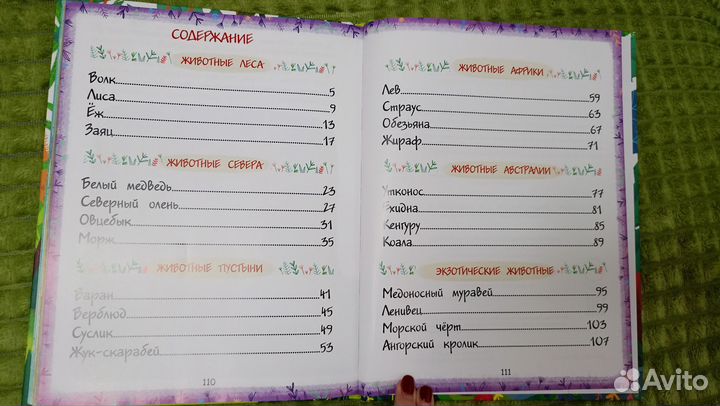 СОДЕРЖАНИЕ
ЖИВОТНЫЕ ЛЕСА
Волк 5
Лиса 9
Ёж 13
Заяц 17
ЖИВОТНЫЕ СЕВЕРА
Белый медведь 23
Северный олень 27
Овцебык 31
Морж 35
ЖИВОТНЫЕ ПУСТЫНИ
Варан 41
Верблюд 45
Суслик 49
Жук-скарабей 53
110
ЖИВОТНЫЕ АФРИКИ
Лев 59
Страус 63
Обезьяна 67
Жираф 71
ЖИВОТНЫЕ АВСТРАЛИИ
Утконос 77
Ехидна 81
Кенгуру 85
Коала 89
ЭКЗОТИЧЕСКИЕ ЖИВОТНЫЕ
Медоносный муравей 95
Ленивец 99
Морской чёрт 103
Ангорский кролик 107
111
Avito